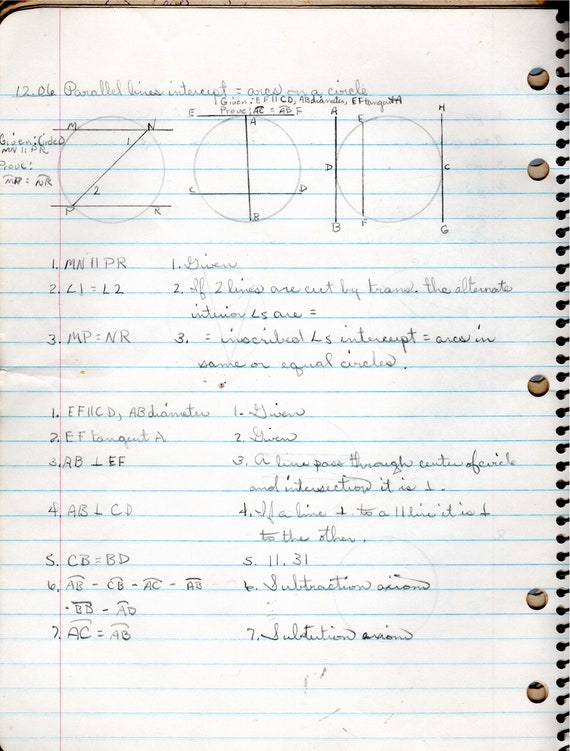 12.06 Parallel lines intercept = arcs on a circle
Given: EF||CD, AB diameter, EF tangent A
Prove: AC = AB
Given: Circle O
MN || PR
Prove:
MP = NR
M N
1
2
P R
E A F
C D
B
A E H
D C
B F G
1. MN || PR 1. Given
2. ∠1 = ∠2 2. If 2 lines are cut by trans. the alternate
interior ∠s are =
3. MP = NR 3. = inscribed ∠s intercept = arcs in
same or equal circles.
1. EF || CD, AB diameter 1. Given
2. EF tangent A 2. Given
3. AB ⊥ EF 3. A line pass through center of circle
and intersection it is ⊥.
4. AB ⊥ CD 4. If a line ⊥ to a || line it is ⊥
to the other.
5. CB = BD 5. 11.31
6. AB - CB - AC - AB 6. Subtraction axiom
- BB - AD
7. AC = AB 7. Substution axiom